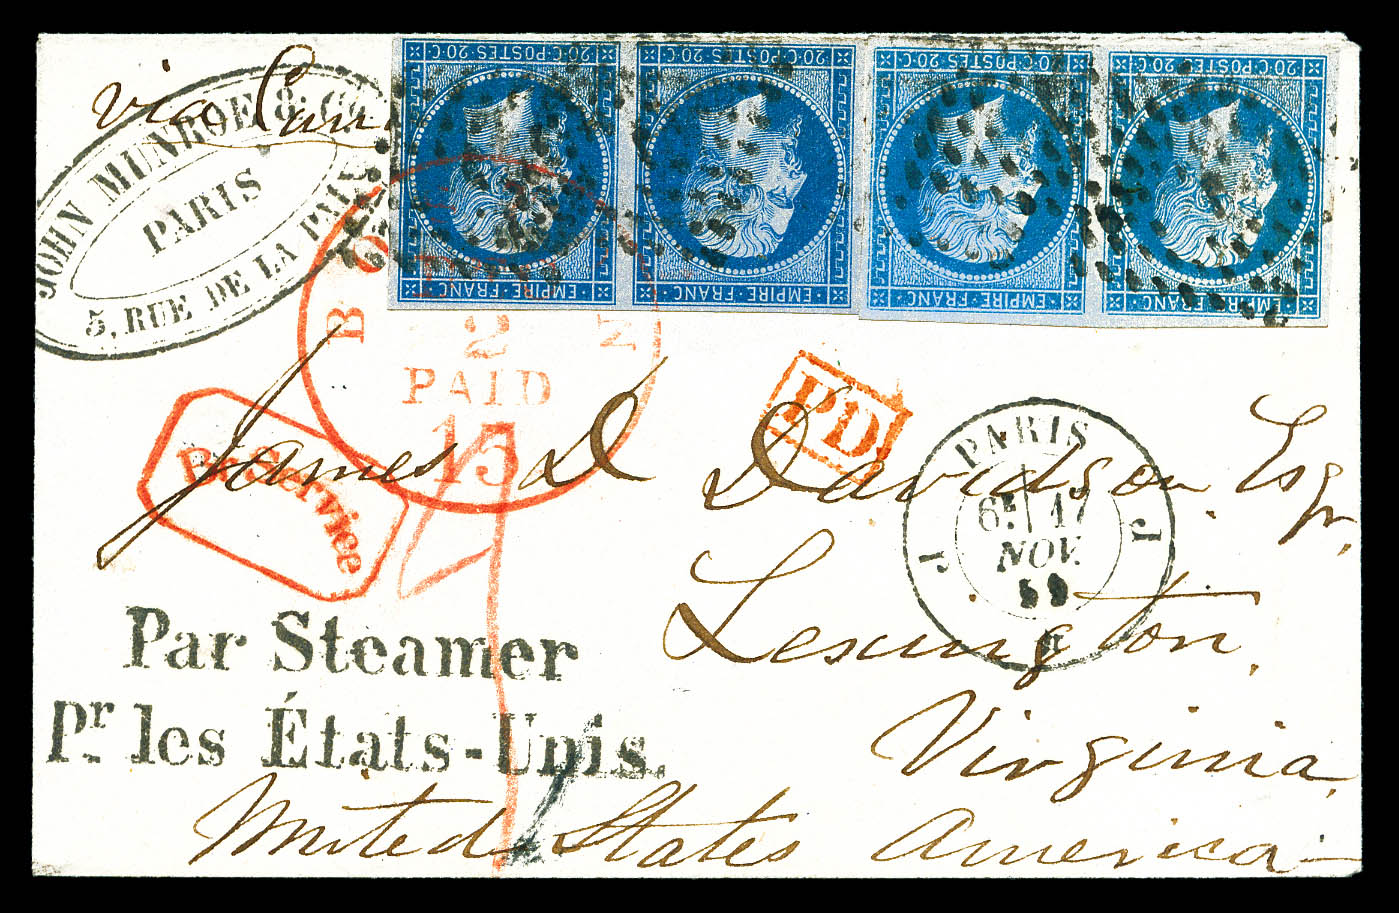 20·C·POSTES·20·C
20·C·POSTES·20·C
20·C·POSTES·20·C
20·C·POSTES·20·C
EMPIRE·FRANC
EMPIRE·FRANC
EMPIRE·FRANC
EMPIRE·FRANC
via
JOHN MUNROE & Co
PARIS
5, RUE DE LA PAIX
BO N
2
PAID
15
PD
Br. Service
PARIS
6E 17
NOV.
59
J J
James D Davidson Esqr,
Lexington,
Virginia,
Par Steamer
Pr. les États-Unis.
United States America